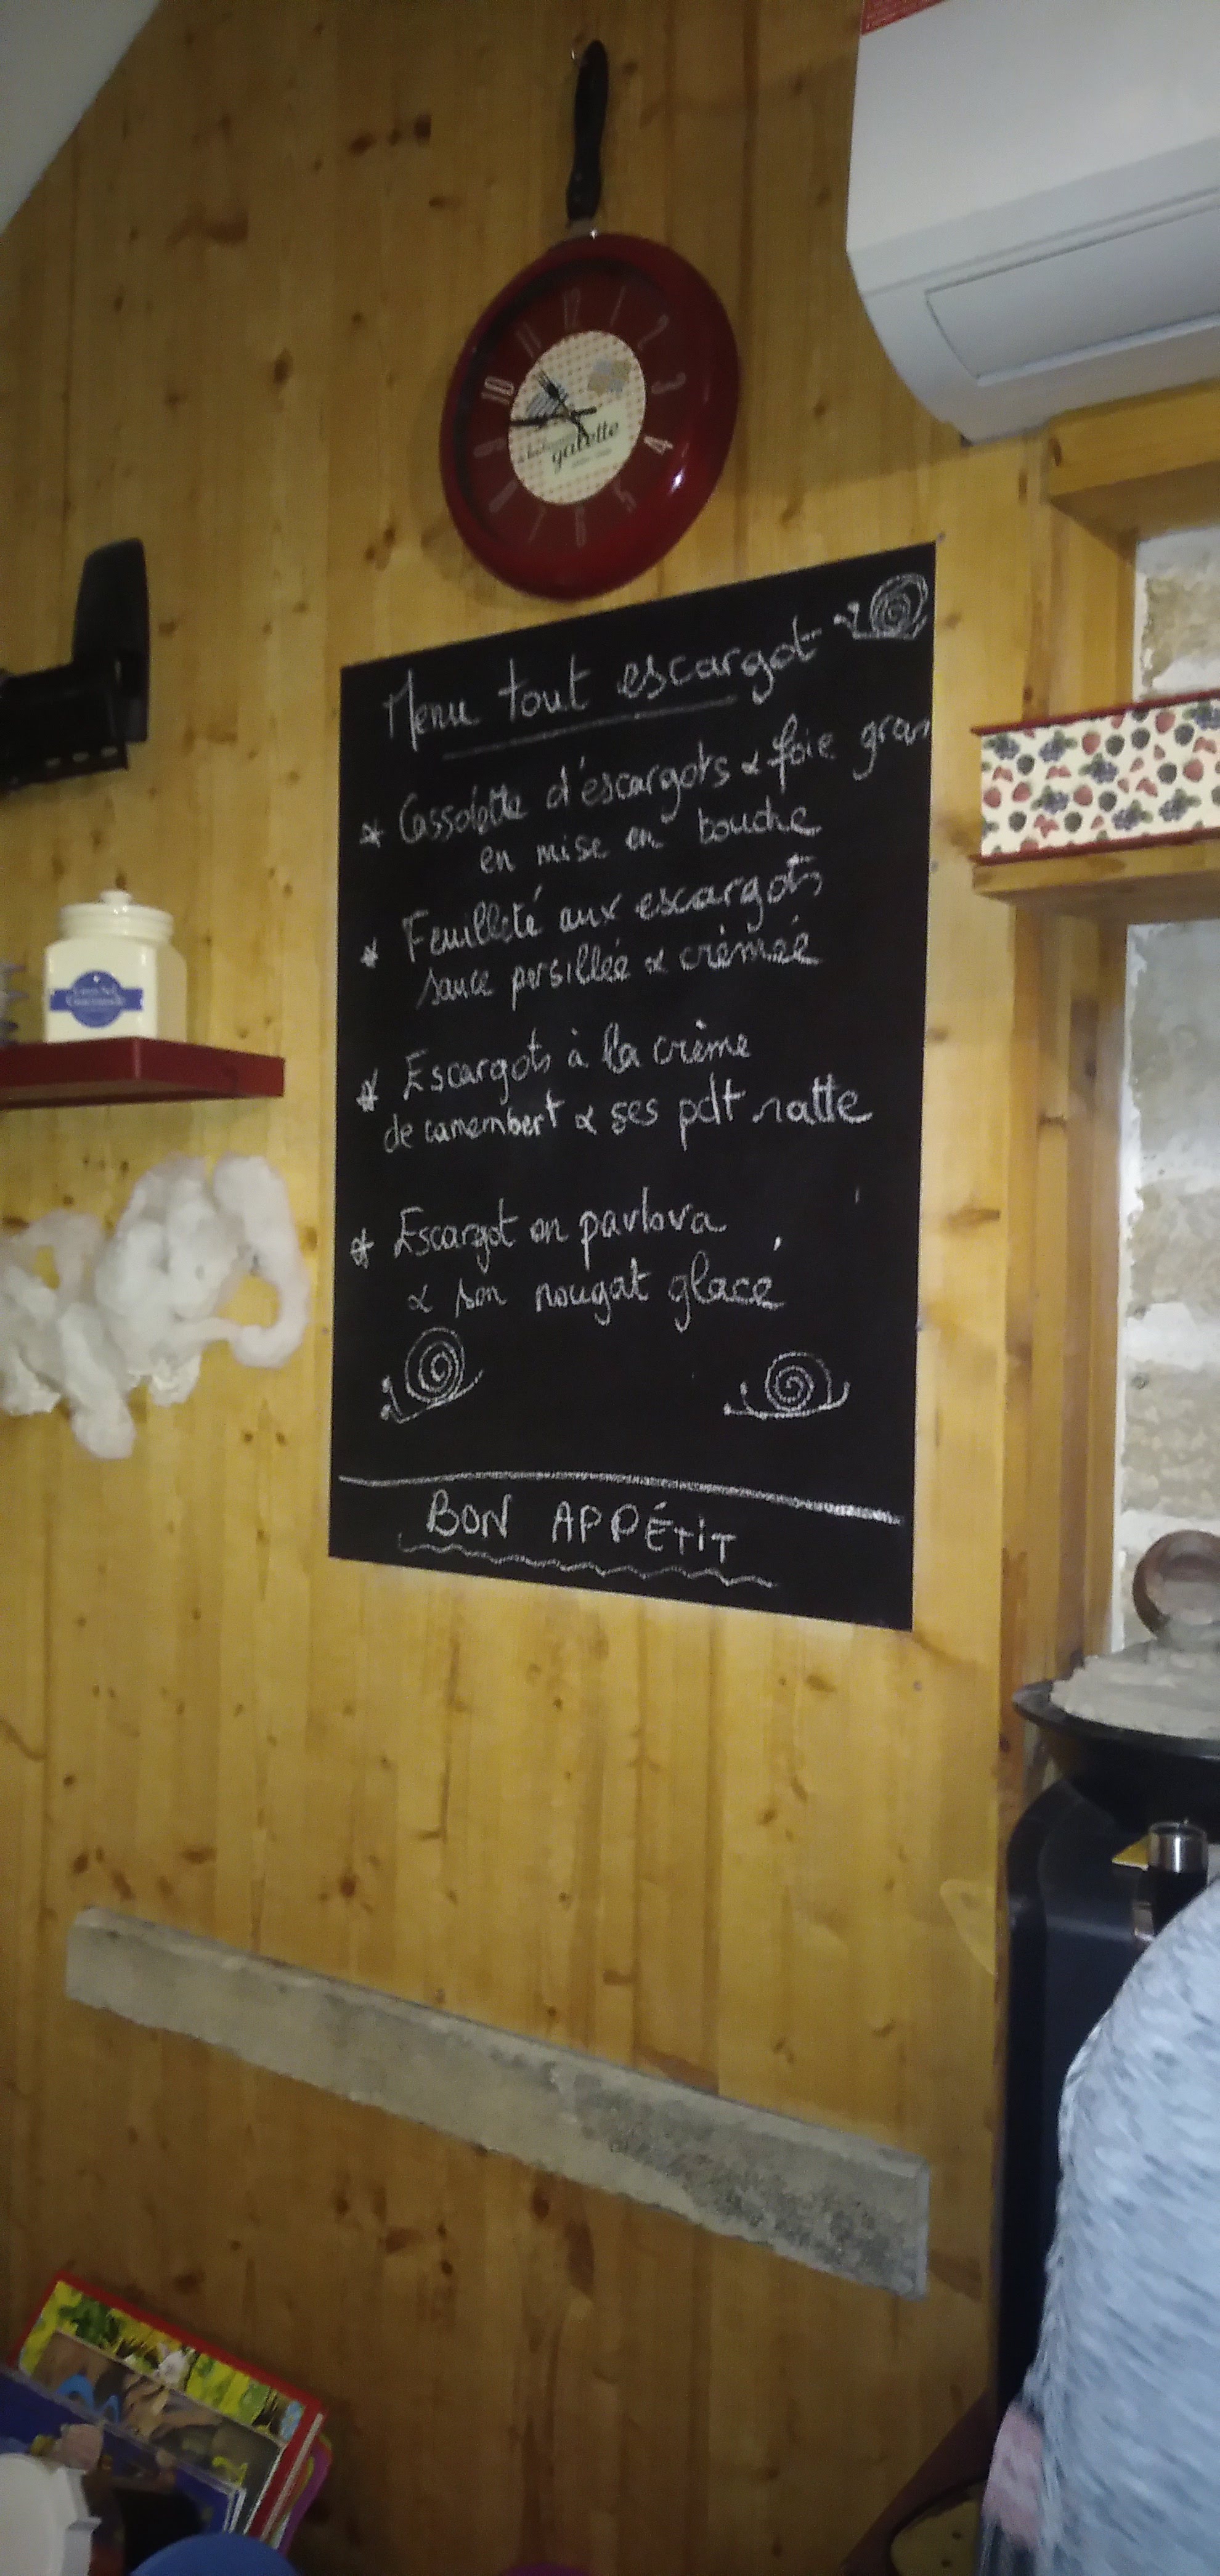 12
1
2
3
4
5
6
7
8
9
10
11
galette
Menu tout escargot
* Cassolette d'éscargots & foie gras
en mise en bouche
* Feuilleté aux escargots
sauce persillée & crémée
* Escargots à la crème
de camembert & ses pdt ratte
* Escargot en pavlova
& son nougat glacé
BON APPÉTIT